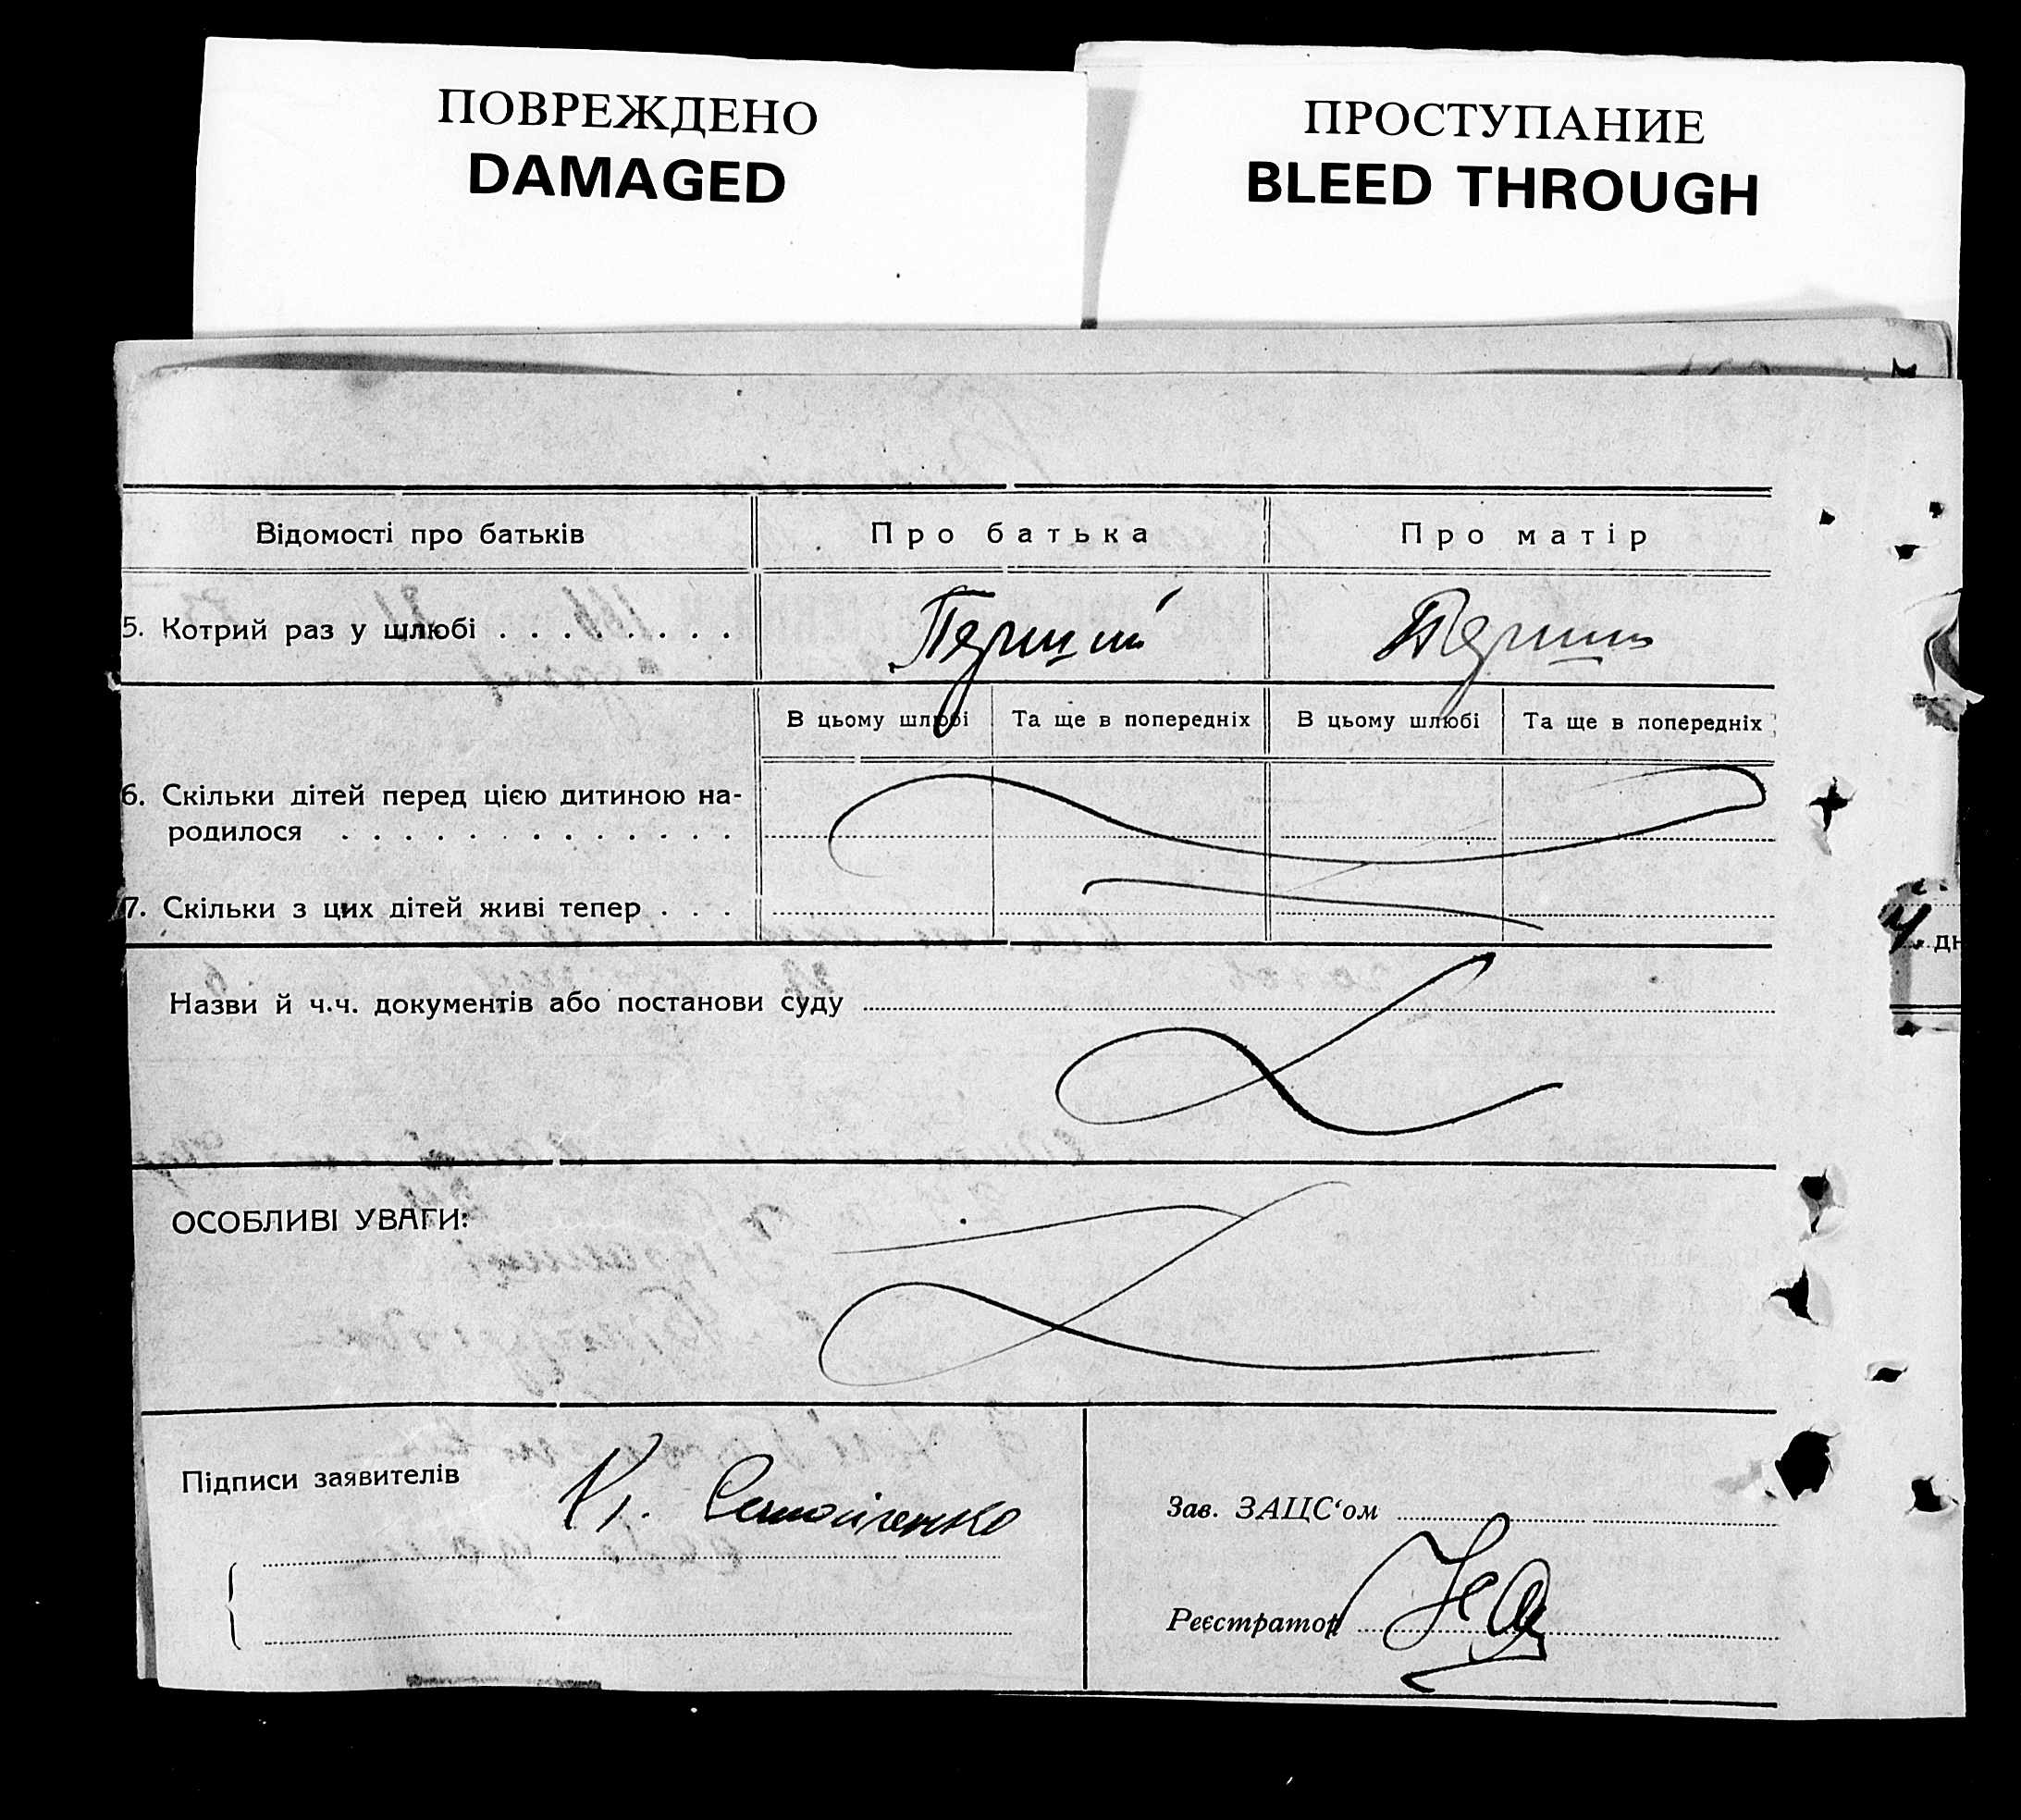 ПОВРЕЖДЕНО
DAMAGED
ПРОСТУПАНИЕ
BLEED THROUGH
Відомості про батьків
Про батька
Про матір
5. Котрий раз у шлюбі . . . . . . . . .
Перший
Перший
В цьому шлюбі
Та ще в попередніх
В цьому шлюбі
Та ще в попередніх
6. Скільки дітей перед цією дитиною на-
родилося . . . . . . . . . . . . .
7. Скільки з цих дітей живі тепер . . .
Назви й ч.ч. документів або постанови суду
ОСОБЛИВІ УВАГИ:
Підписи заявителів
Зав. ЗАЦС‘ом
Реєстратор